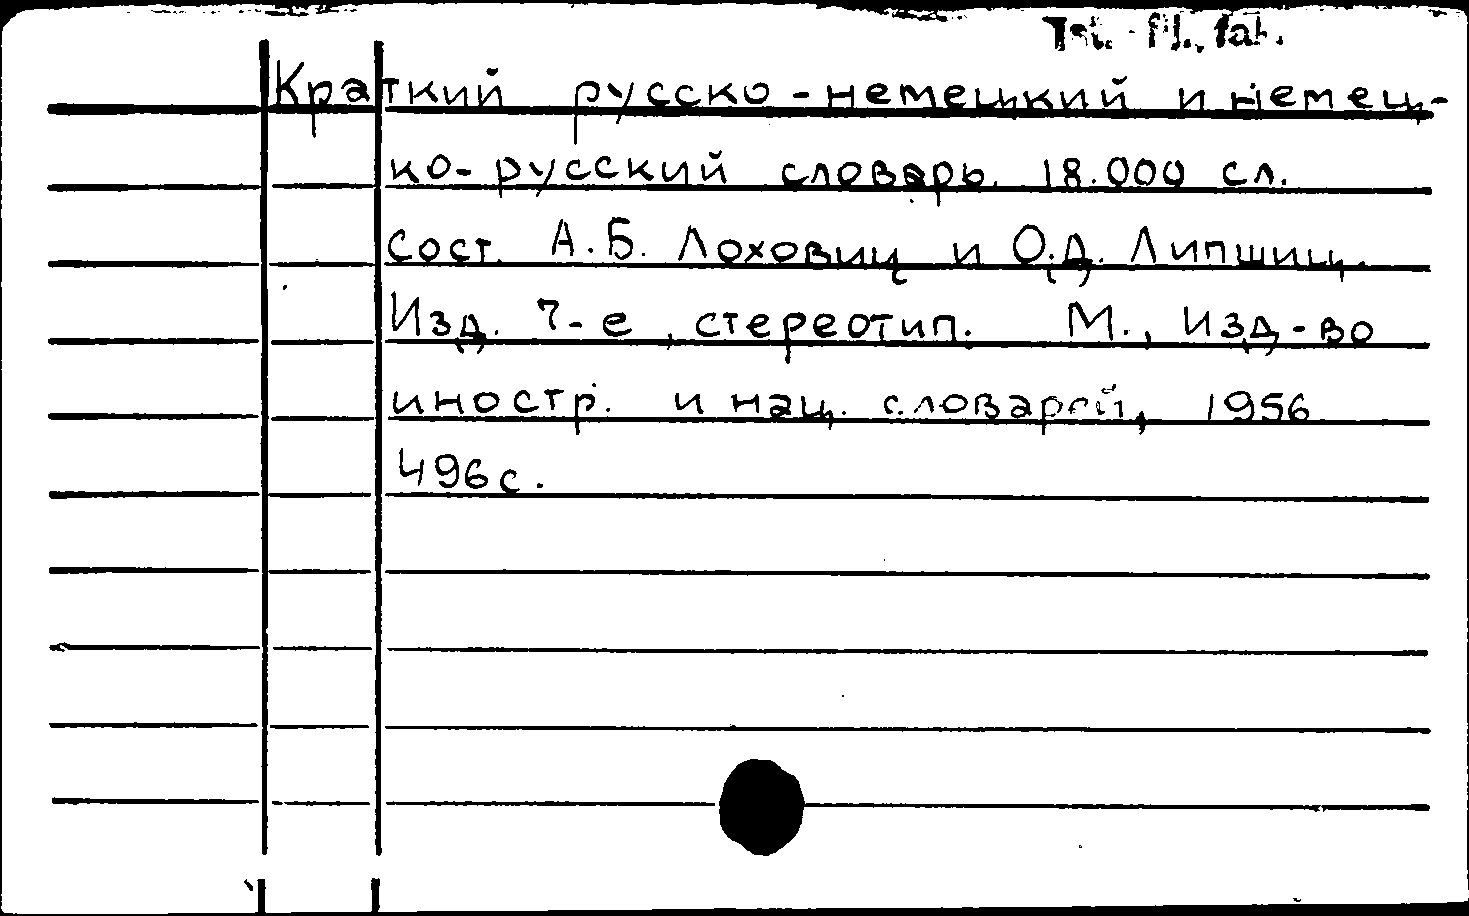 Ist. - fil. fak.
Краткий русско-немецкий и немец-
ко-русский словарь. 18.000 сл.
Сост. А.Б. Лоховиц и О.Д. Липшиц.
Изд. 7-е, стереотип. М., Изд-во
иностр. и нац. словарей, 1956
496 с.